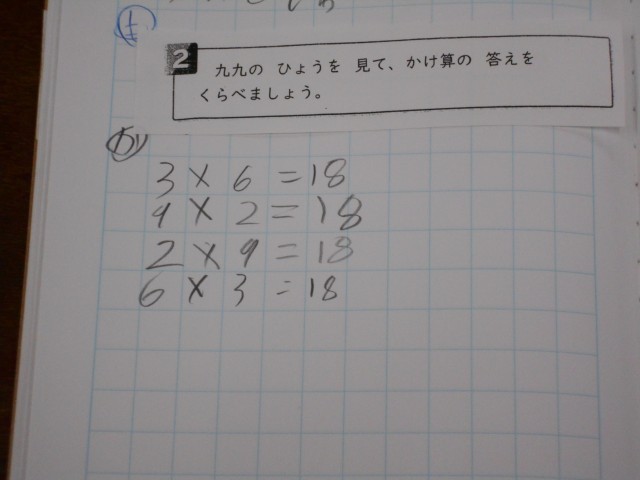 2
九九の ひょうを 見て、かけ算の 答えを
くらべましょう。
3 × 6 = 18
9 × 2 = 18
2 × 9 = 18
6 × 3 = 18